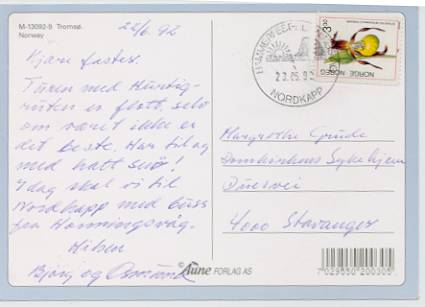 M-13092-9 Tromsø.
Norway
22/6.92
Kjære faster.
Turen med Hurtig-
ruten er flott, selv
om været ikke er
det beste. Har til og
med hatt snø!
I dag skal vi til
Nordkapp med buss
fra Honningsvåg.
Hilsen
Bjørg og
NORDKAPP
3,30
NORGE NOREG
Margrethe Grude
Domkirkens Sykehjem
4000 Stavanger
©Aune FORLAG AS
7 029550 200305